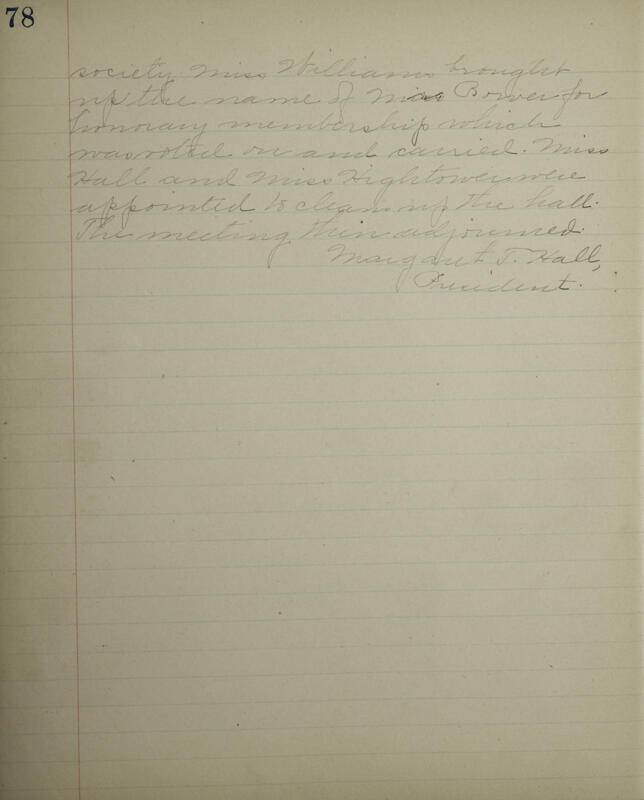 78
society. Miss Williams brought
up the name of Miss Bower for
honorary membership which
was voted on and carried. Miss
Hall and Miss Hightower were
appointed to clean up the hall.
The meeting then adjourned.
Margaret T. Hall,
President.